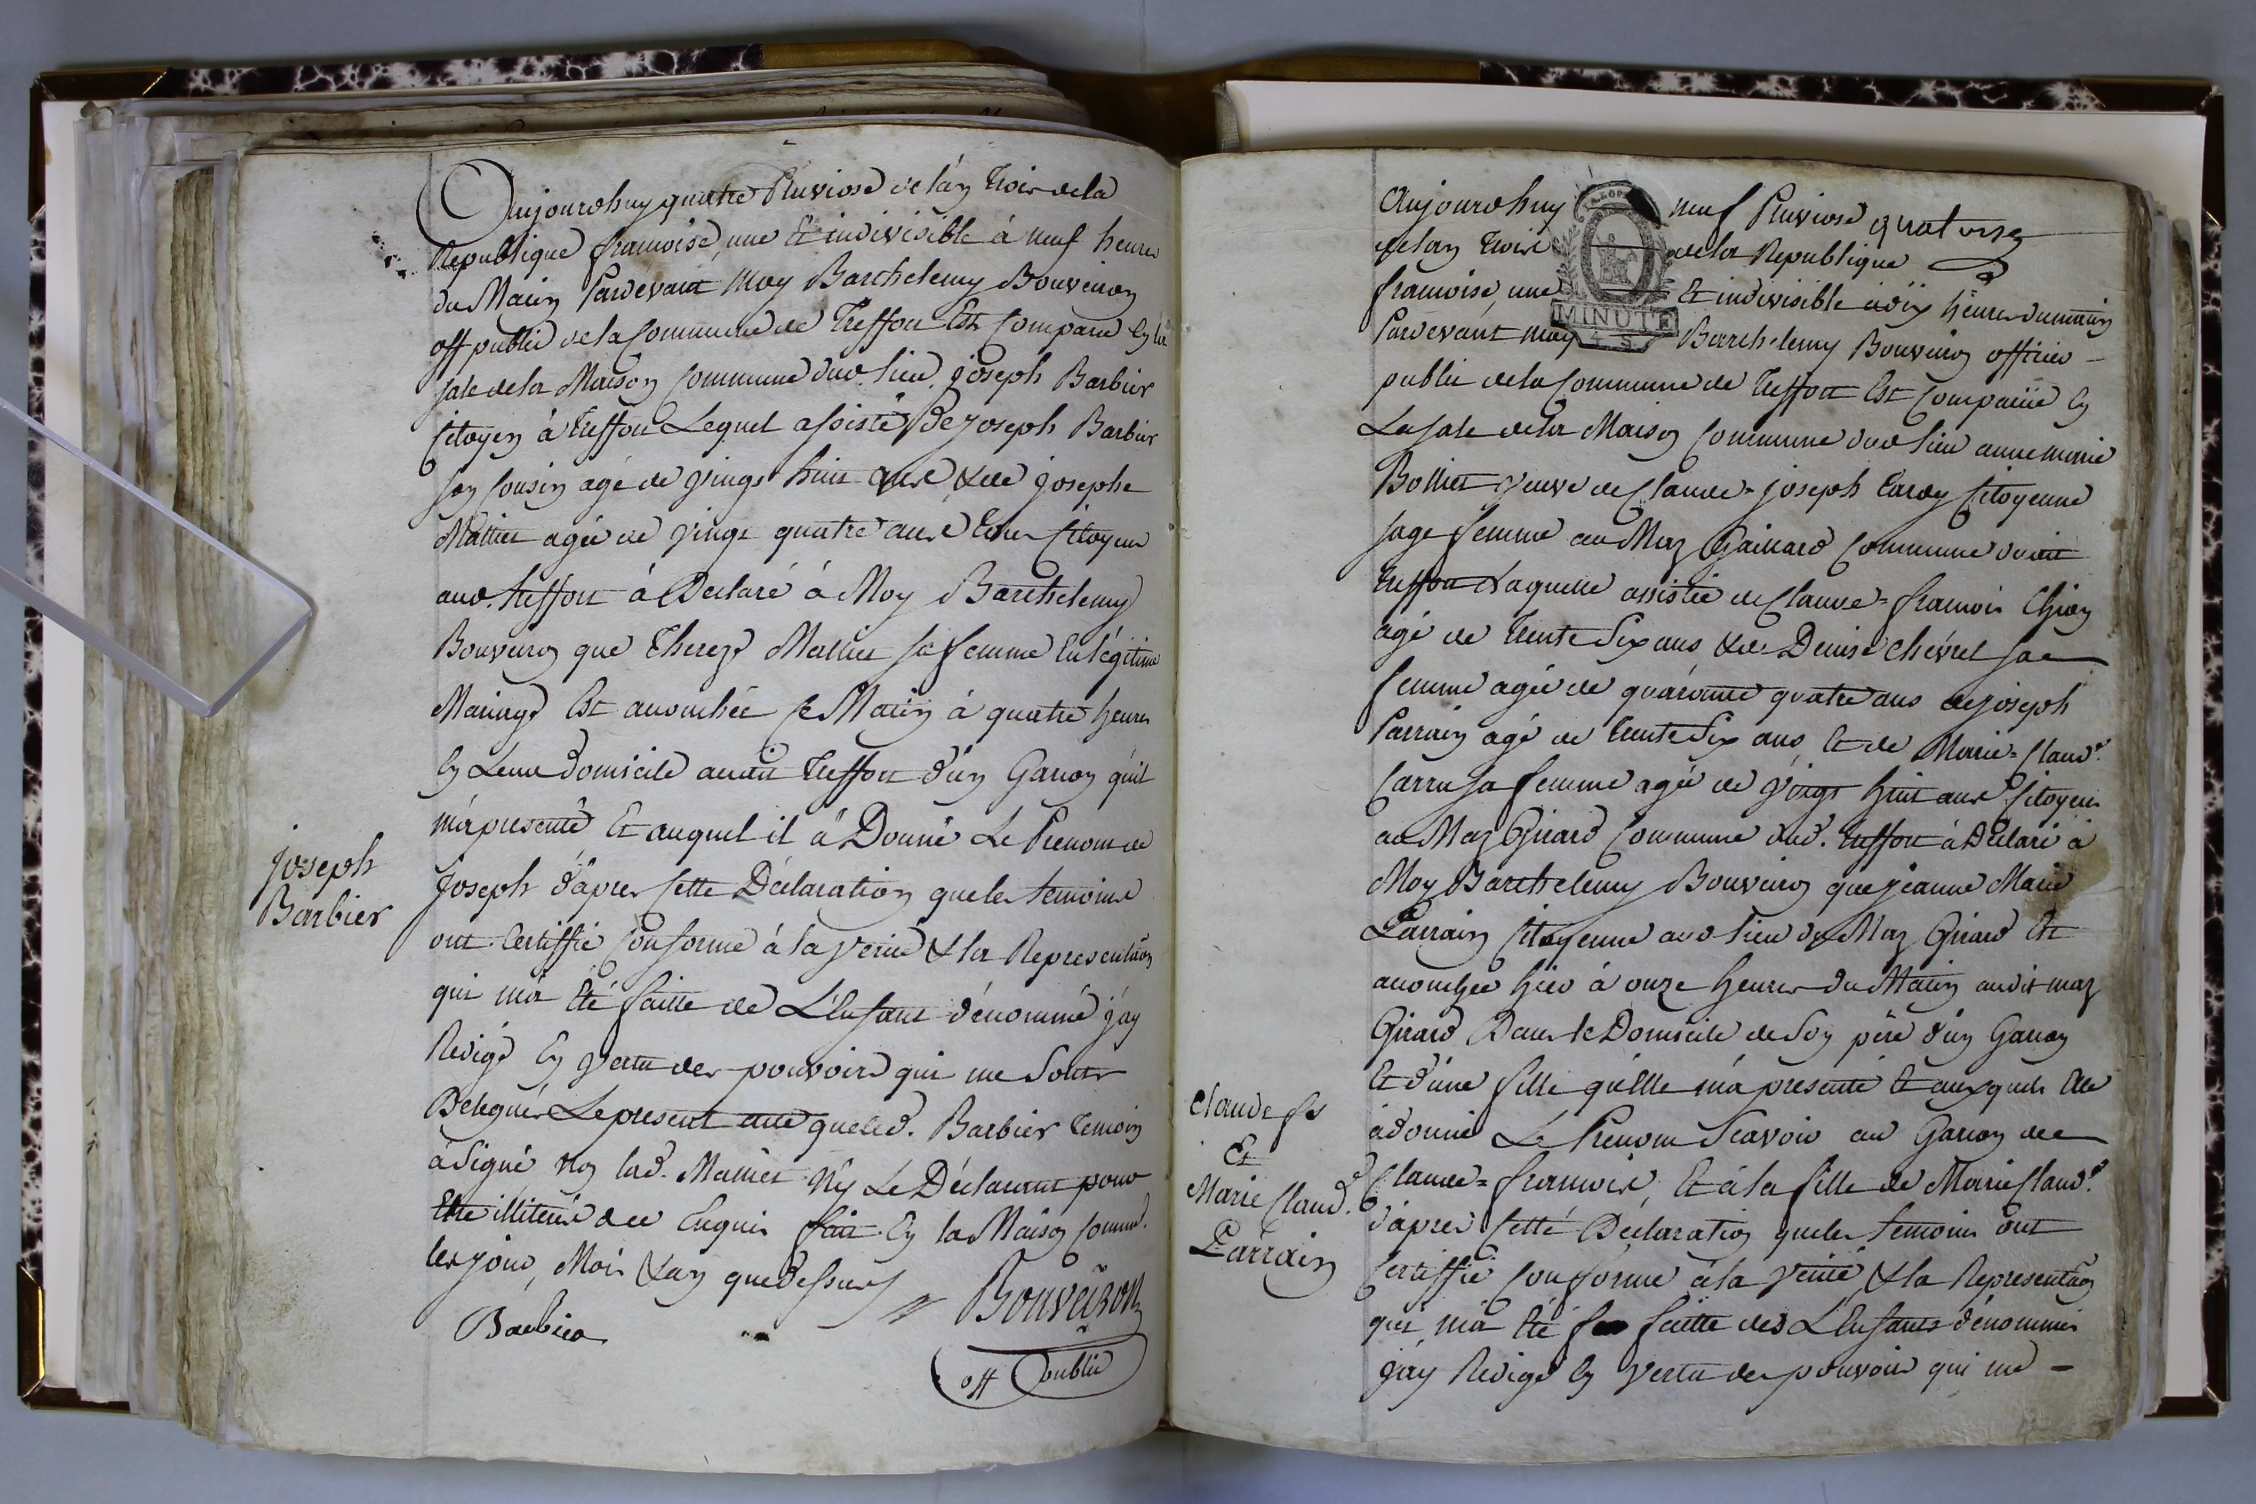 Aujourdhuy quatre Pluviose de lán trois de la
Republique francoise, une Et indivisible à neuf heures
du Matin Pardevant Moy Barthelemy Bouveiron
off public de la Commune de Treffort Est Comparu En la
sale de la Maison Commune dud. lieu Joseph Barbier
Citoyen à Treffort Lequel assisté de Joseph Barbier
son Cousin agé de vingt huit ans & de Josephe
Mathiet agée de vingt quatre ans tous Citoyens
aud. treffort à Declaré à Moy Barthelemy
Bouveiron que Thereze Mathiet sa femme En légitime
Mariage Est accouchée Ce Matin à quatre heures
En Leur domicile audit Treffort d'un Garcon qu'il
m'a presenté Et auquel il à Donné Le Prenom de
Joseph
Barbier
Joseph d'après Cette Déclaration que les temoins
ont Certiffié Conforme à la verité & la Representaõn
qui m'a Eté faitte de L'Enfant dénommé j'ay
Redigé En vertu des pouvoirs qui me Sont
Delegués Le present acte que led. Barbier temoin
à Signé non lad. Mathiet Ny Le Déclarant pour
Etre illiteré de ce Enquis fait En la Maison Commᵉ.
les jour, Mois & an que dessus
Bouveiron
Barbier
off public
Aujourdhuy neuf Pluviose quatorze
de lan trois de la Republique
MINUTE
francoise, une Et indivisible à dix heures du matin
Pardevant moy Barthelemy Bouveiron officier
public de la Commune de Treffort Est Comparüe En
La sale de la Maison Commune dud lieu anne marie
Bolliet veuve de Claude=Joseph Tardy Citoyenne
sage femme au Maz Gaillard Commune dudit
treffort Laquelle assistée de Claude=francois Chion
agé de trente Six ans & de Denise chevret sa
femme agée de quarante quatre ans de joseph
Parrain agé de trente Six ans, Et de Marie=Claudᵉ.
Carru sa femme agée de vingt huit ans Citoyens
au Maz Girard Commune dud. treffort à Déclaré à
Moy Barthelemy Bouveiron que jeanne Marie
Parrain Citoyenne aud lieu du Maz Girard Est
accouchée hier à onze heures du Matin audit maz
Girard Dans le Domicile de Son père d'un Garcon
Et d'une fille qu'Elle m'a presenté Et auxquels Elle
claude fs
Et
Marie Claudᵉ.
Parrain
à donné Le Prenom Scavoir au Garcon de
Claude=francois, Et à la fille de Marie Claudᵉ.
d'apres Cette Déclaration que les temoins ont
Certiffié Conforme à la verité, & la Representaõn
qui m'a Eté faitte des L'Enfants dénommés
j'ay Redigé En vertu des pouvoirs qui me =